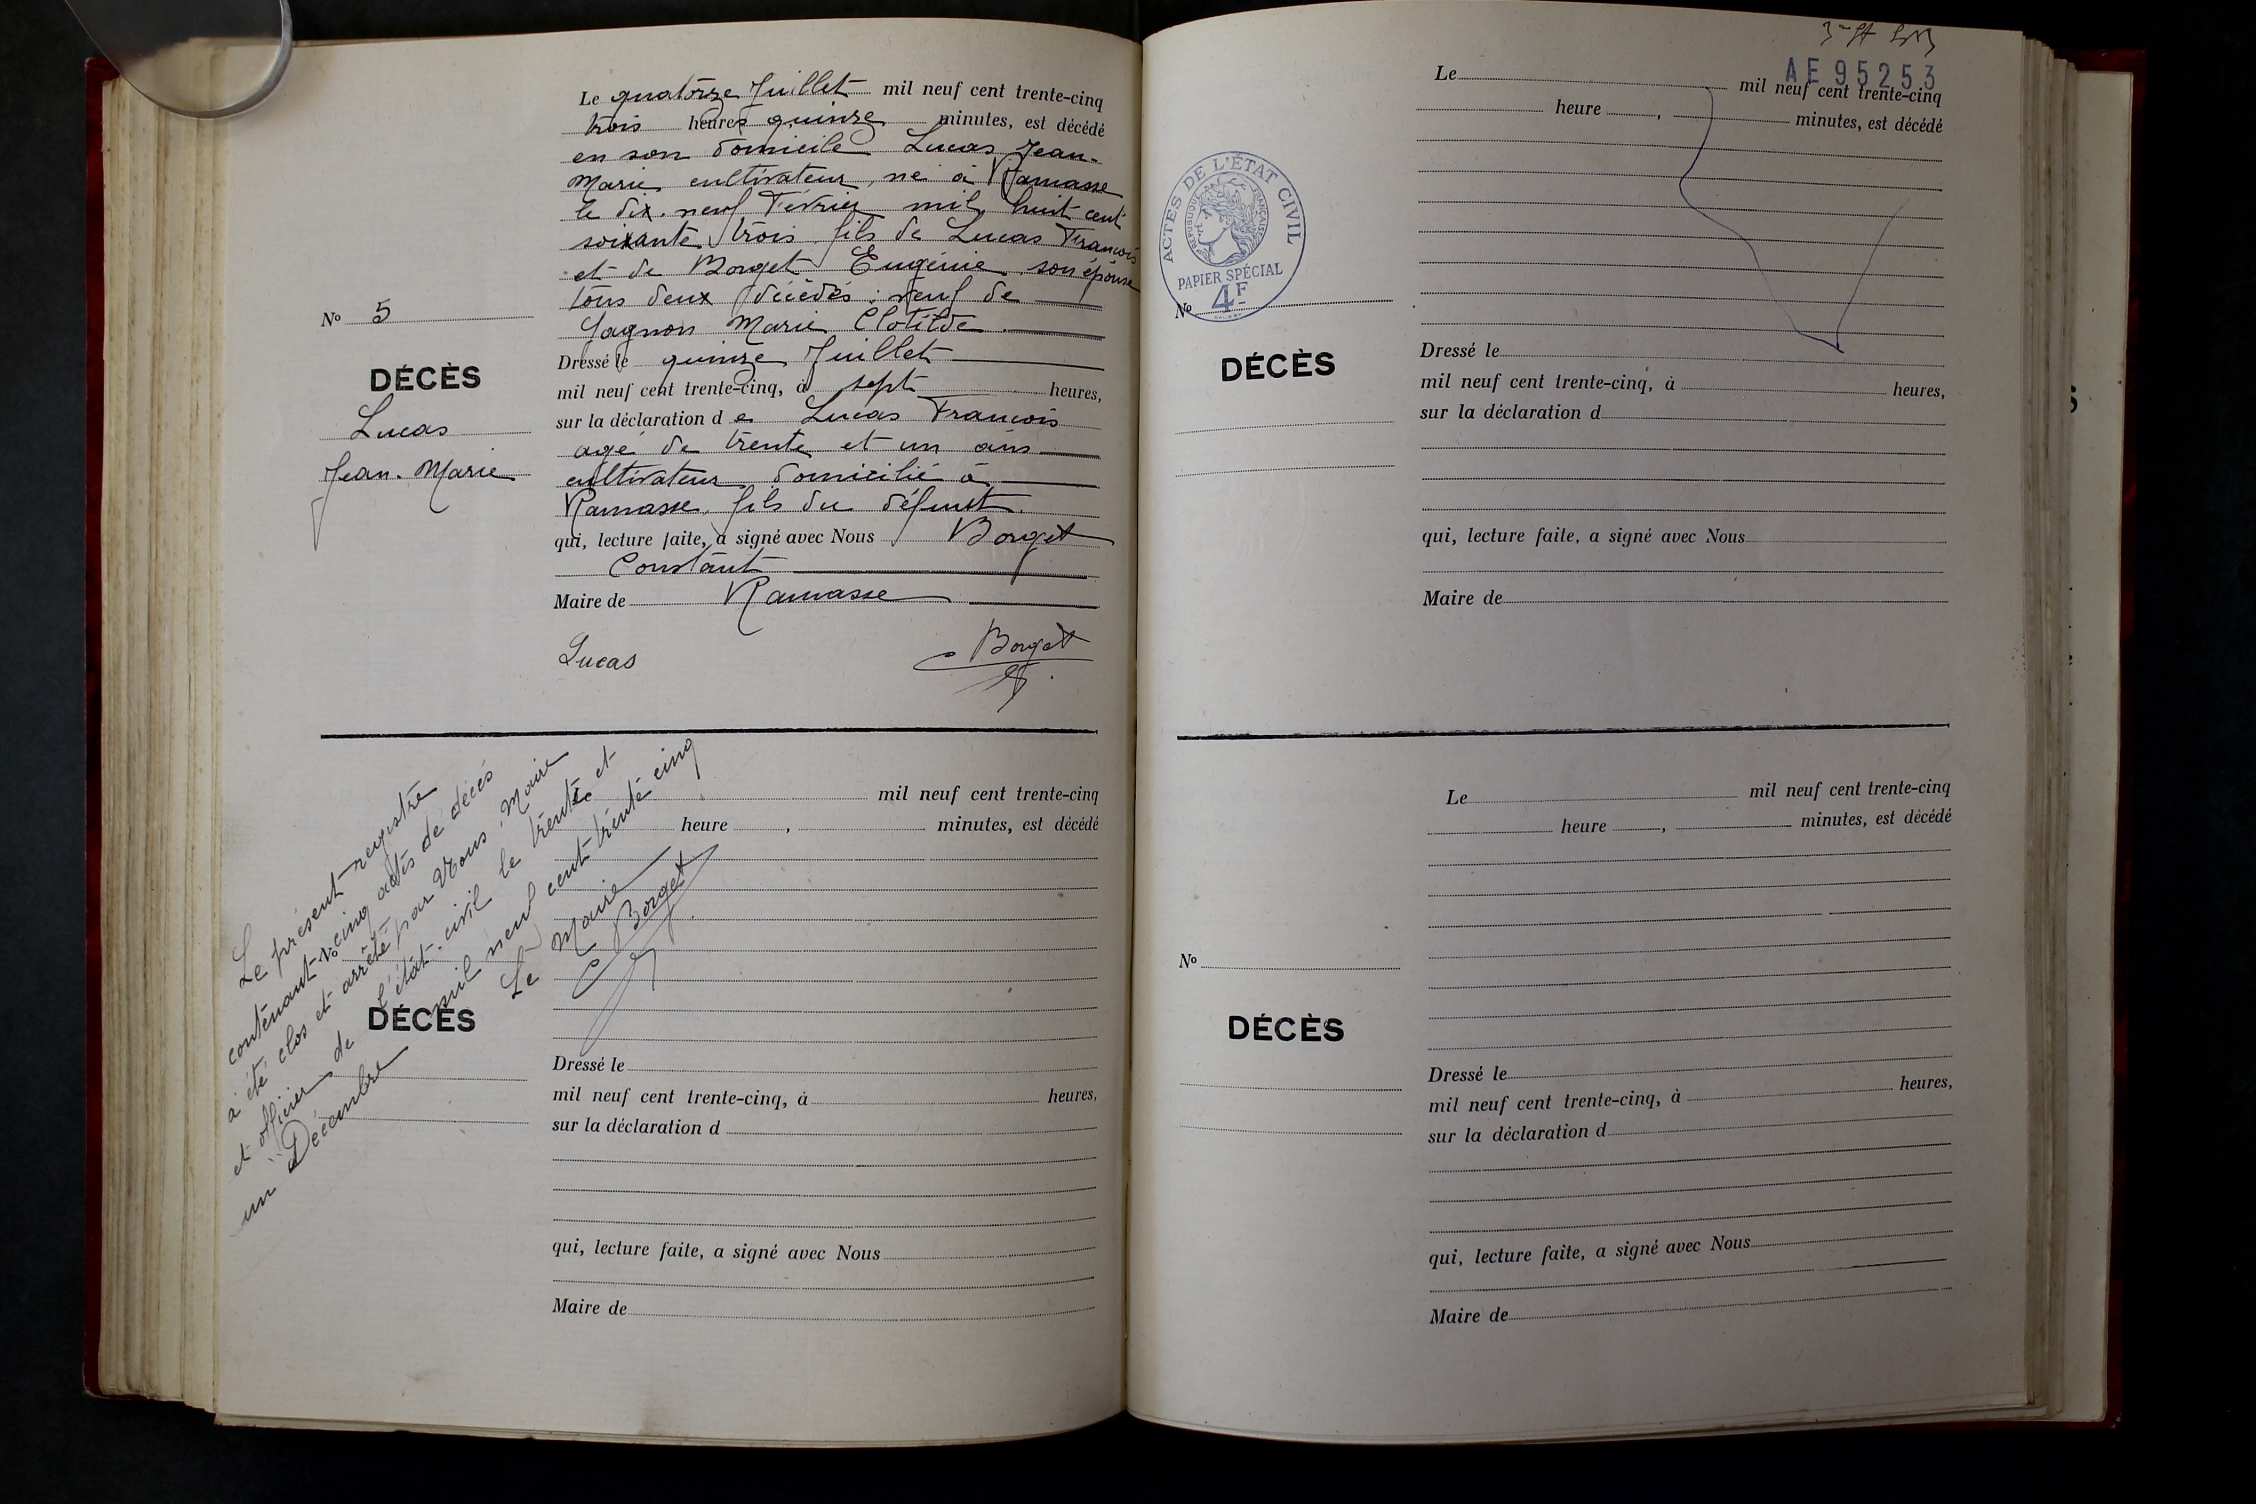 Le quatorze Juillet mil neuf cent trente-cinq
trois heures quinze minutes, est décédé
en son domicile Lucas Jean-
Marie cultivateur, né à Ramasse
le dix-neuf Février mil huit cent
soixante trois fils de Lucas François
et de Borget Eugénie son épouse
tous deux décédés : veuf de
Gagnon Marie Clotilde.
Dressé le quinze Juillet
mil neuf cent trente-cinq, à sept heures,
sur la déclaration de Lucas François
agé de trente et un ans
cultivateur domicilié à
Ramasse, fils du défunt.
qui, lecture faite, a signé avec Nous Borget
Constant
Maire de Ramasse
Lucas Borget
No 5
DÉCÈS
Lucas
Jean-Marie
Le présent registre
contenant cinq actes de décès
a été clos et arrêté par Nous, Maire
et officier de l'état-civil le trente et
un Décembre mil neuf cent trente cinq
Le Maire
C Borget
Le mil neuf cent trente-cinq
heure , minutes, est décédé
No
DÉCÈS
Dressé le
mil neuf cent trente-cinq, à heures,
sur la déclaration d
qui, lecture faite, a signé avec Nous
Maire de
AE95253
Le mil neuf cent trente-cinq
heure , minutes, est décédé
ACTES DE L'ÉTAT CIVIL
RÉPUBLIQUE FRANÇAISE
PAPIER SPÉCIAL
4F
No
DÉCÈS
Dressé le
mil neuf cent trente-cinq, à heures,
sur la déclaration d
qui, lecture faite, a signé avec Nous
Maire de
Le mil neuf cent trente-cinq
heure , minutes, est décédé
No
DÉCÈS
Dressé le
mil neuf cent trente-cinq, à heures,
sur la déclaration d
qui, lecture faite, a signé avec Nous
Maire de